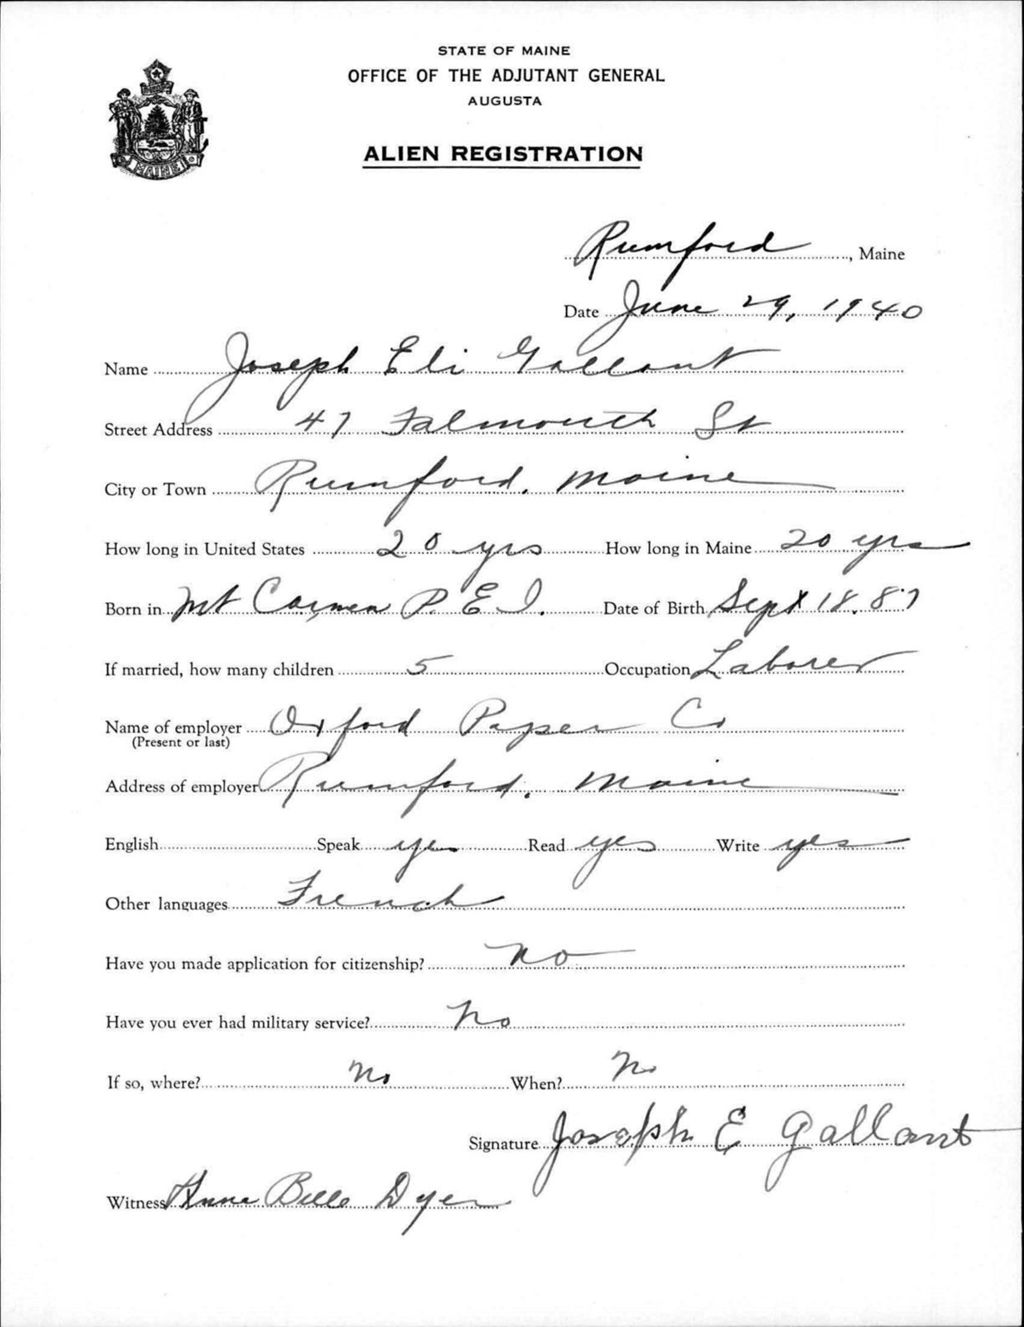 STATE OF MAINE
OFFICE OF THE ADJUTANT GENERAL
AUGUSTA
ALIEN REGISTRATION
MAINE
Rumford, Maine
Date June 29, 1940
Name Joseph Eli Gallant
Street Address 47 Falmouth St
City or Town Rumford, Maine
How long in United States 20 yrs How long in Maine 20 yrs
Born in Mt Carmen P. E I. Date of Birth Sept 18. 87
If married, how many children 5 Occupation Laborer
Name of employer Oxford Paper Co
(Present or last)
Address of employer Rumford, Maine
English Speak yes Read yes Write yes
Other languages French
Have you made application for citizenship? No
Have you ever had military service? No
If so, where? No When? No
Signature Joseph E Gallant
Witness Anne Belle Dyer